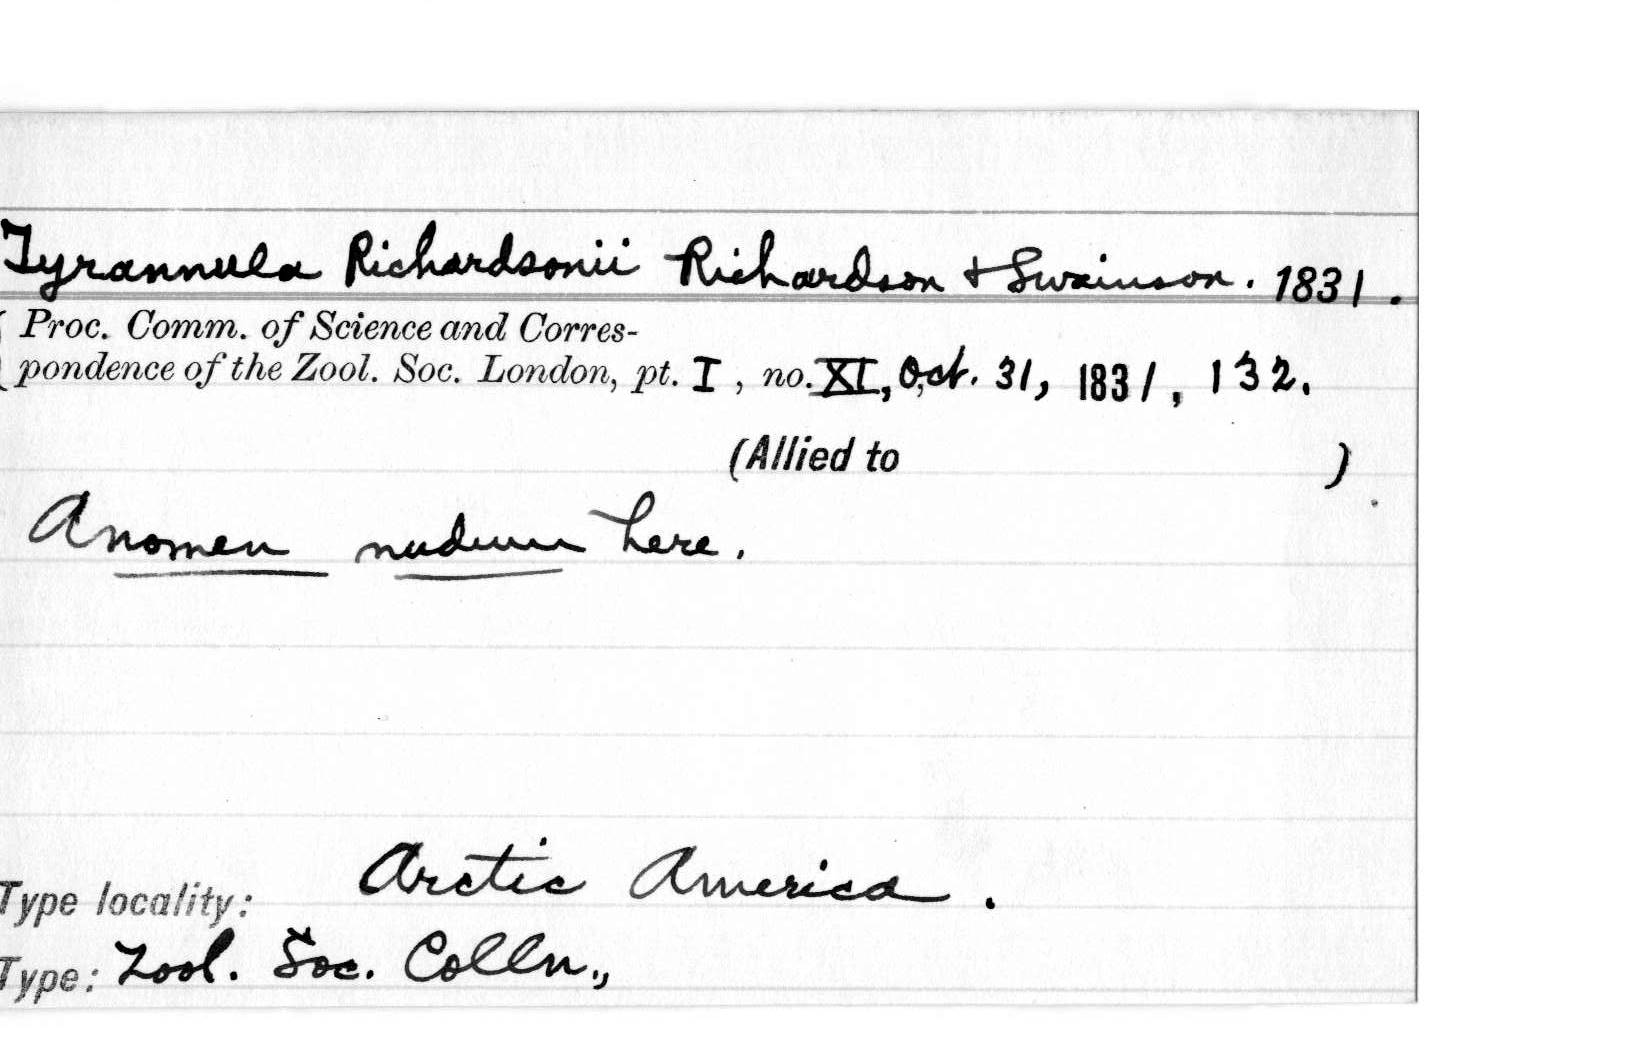 Tyrannula Richardsonii Richardson & Swainson. 1831.
Proc. Comm. of Science and Corres-
pondence of the Zool. Soc. London, pt. I, no. XI, Oct. 31, 1831, 132.
(Allied to )
A nomen nudum here.
Type locality: Arctic America.
Type: Zool. Soc. Colln.,